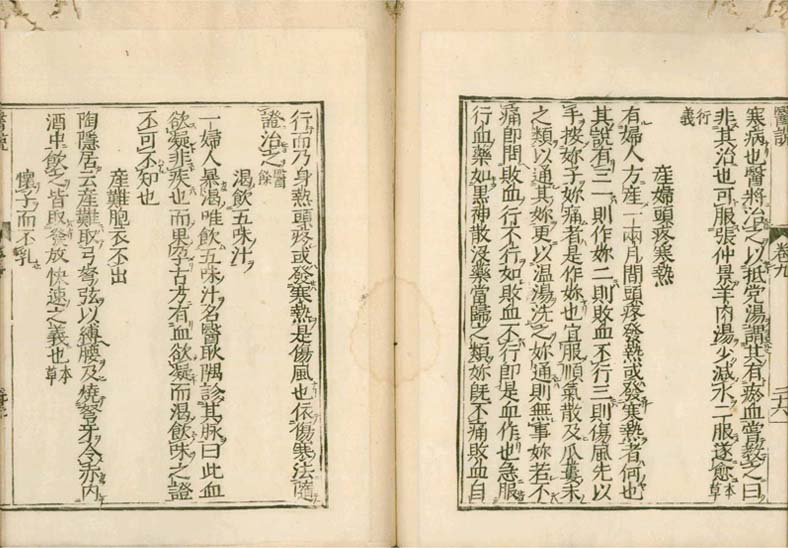 醫說
卷九
二六
寒病也醫將治之以抵党湯謂其有瘀血嘗教之曰
非其治也可服張仲景羊肉湯少減水二服遂愈本草衍
義
産婦頭疼寒熱
有婦人方産一兩月間頭疼發熱或發寒熱者何也
其說有三一則作妳二則敗血不行三則傷風先以
手按妳子妳痛者是作妳也宜服順氣散及瓜蔞末
之類以通其妳更以温湯洗之妳通則無事妳若不
痛即問敗血行不行如敗血不行即是血作也急服
行血藥如黒神散没藥當歸之類妳既不痛敗血自
行而乃身熱頭疼或發寒熱是傷風也依傷寒法隨
證治之醫餘
渴飲五味汁
一婦人暴渴唯飲五味汁名醫耿隅診其脉曰此血
欲凝非疾也而果孕古方有血欲凝而渴飲味之證
不可不知也
産難胞衣不出
陶隱居云産難取弓弩弦以縛腰及燒弩牙令赤内
酒中飲之皆取發放快速之義也本草
懷子而不乳
醫說